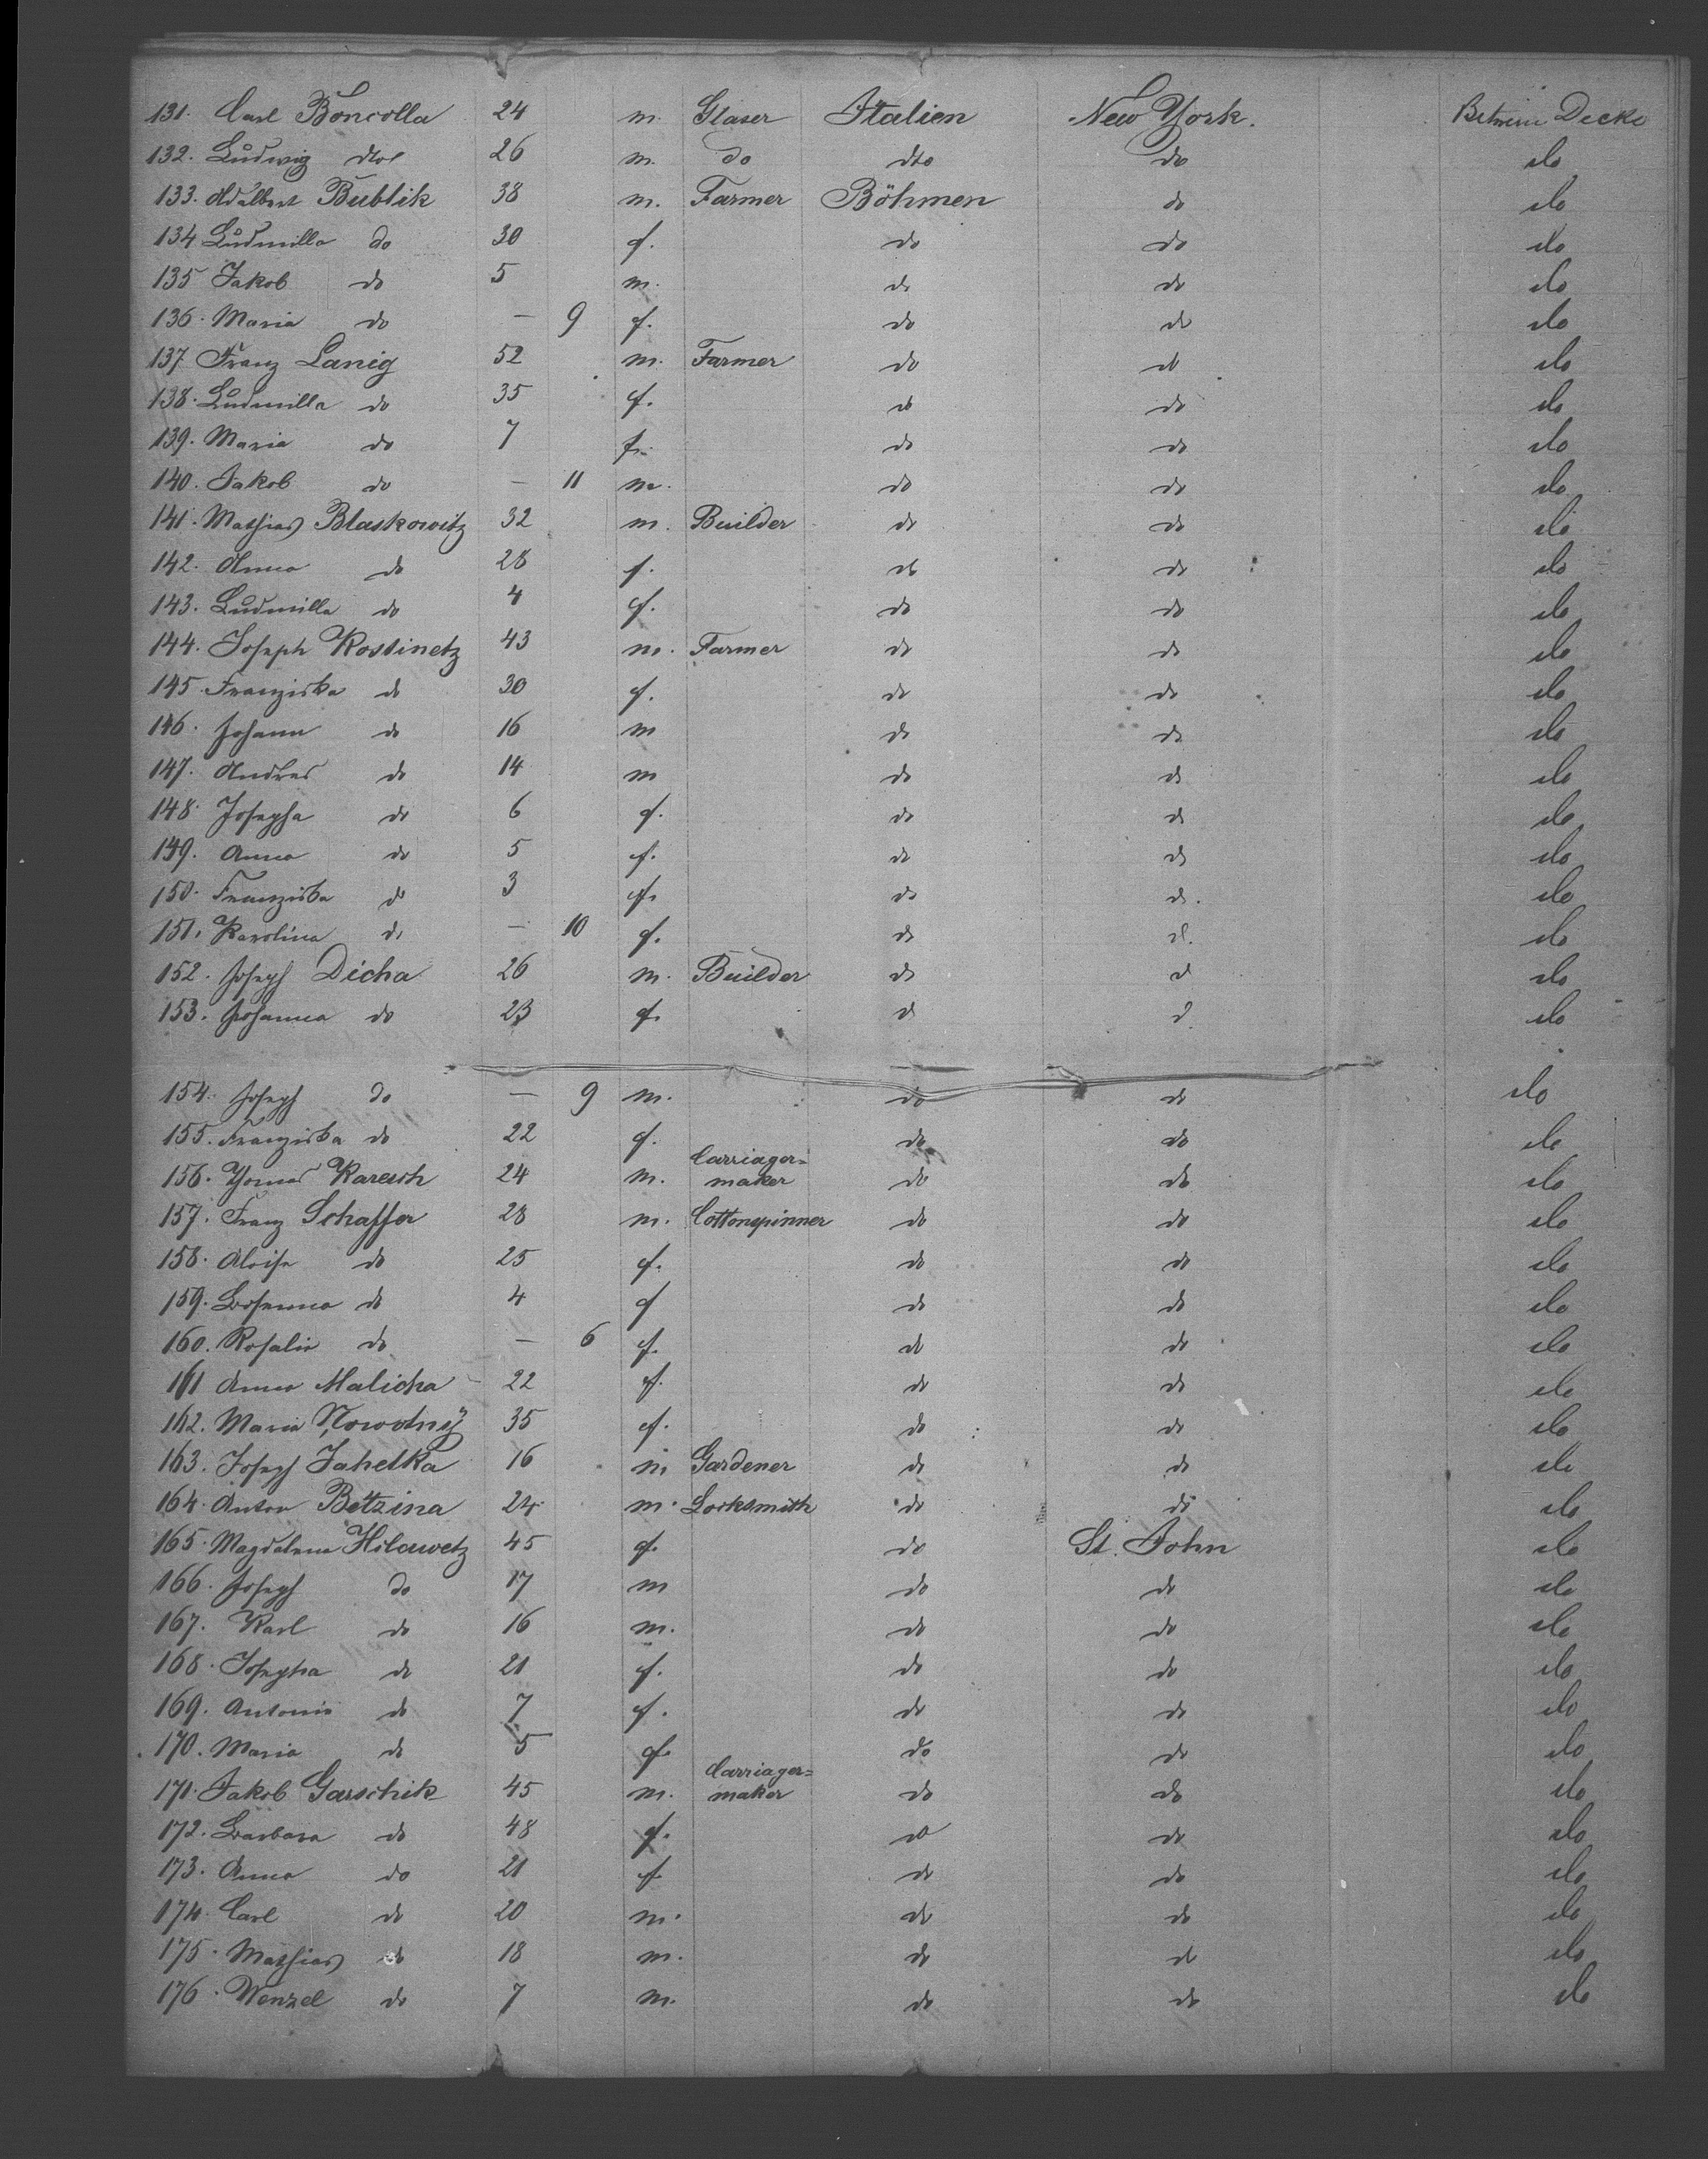 131. Carl Boncolla 24 m. Glaser Italien New York. Between Decke
132. Ludwig dto 26 m. do dto do do
133. Adalbert Bublik 38 m. Farmer Böhmen do do
134 Ludmilla do 30 f. do do do
135 Jakob do 5 m. do do do
136. Maria do — 9 f. do do do
137 Franz Lanig 52 m. Farmer do do do
138. Ludmilla do 35 f. do do do
139. Maria do 7 f. do do do
140. Jakob do — 11 m. do do do
141. Mathias Blaskowitz 32 m. Builder do do do
142. Anna do 28 f. do do do
143. Ludmilla do 4 f. do do do
144. Joseph Kostinetz 43 m. Farmer do do do
145. Franziska do 30 f. do do do
146. Johann do 16 m do do do
147. Andreas do 14 m do do do
148. Josepha do 6 f. do do do
149. Anna do 5 f. do do do
150. Franziska do 3 f. do do do
151. Karolina do — 10 f. do do do
152. Joseph Dicha 26 m. Builder do do do
153. Johanna do 23 f. do do do
154. Joseph do — 9 m. do do do
155. Franziska do 22 f. do do do
156. Karesch 24 m. Carriager=maker do do do
157. Franz Schaffer 28 m. Cottonspinner do do do
158. Aloise do 25 f. do do do
159. do 4 f do do do
160. Rosalie do — 6 f. do do do
161 Anna Malicha 22 f. do do do
162. Maria Nowotny 35 f. do do do
163. Joseph Jahelka 16 m Gardener do do do
164. Anton Betzina 24 m. Locksmith do do do
165. Magdalena Hilawetz 45 f. do St. John do
166. Joseph do 17 m do do do
167. Karl do 16 m. do do do
168. Josepha do 21 f. do do do
169. Antonie do 7 f. do do do
170. Maria do 5 f. do do do
171. Jakob Garschik 45 m. Carriager=maker do do do
172. Barbara do 48 f. do do do
173. Anna do 21 f. do do do
174. Carl do 20 m. do do do
175. Mathias do 18 m. do do do
176. Wenzel do 7 m. do do do